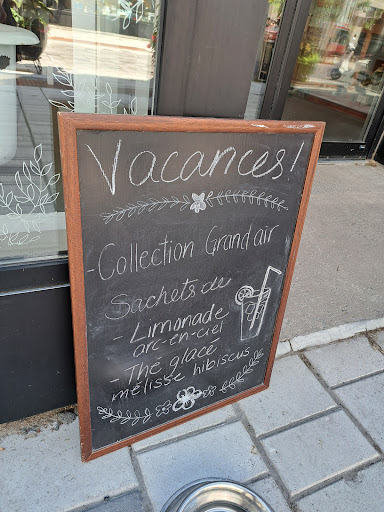 Vacances!
- Collection Grand air
Sachets de
- Limonade
arc-en-ciel
- Thé glacé
mélisse hibiscus